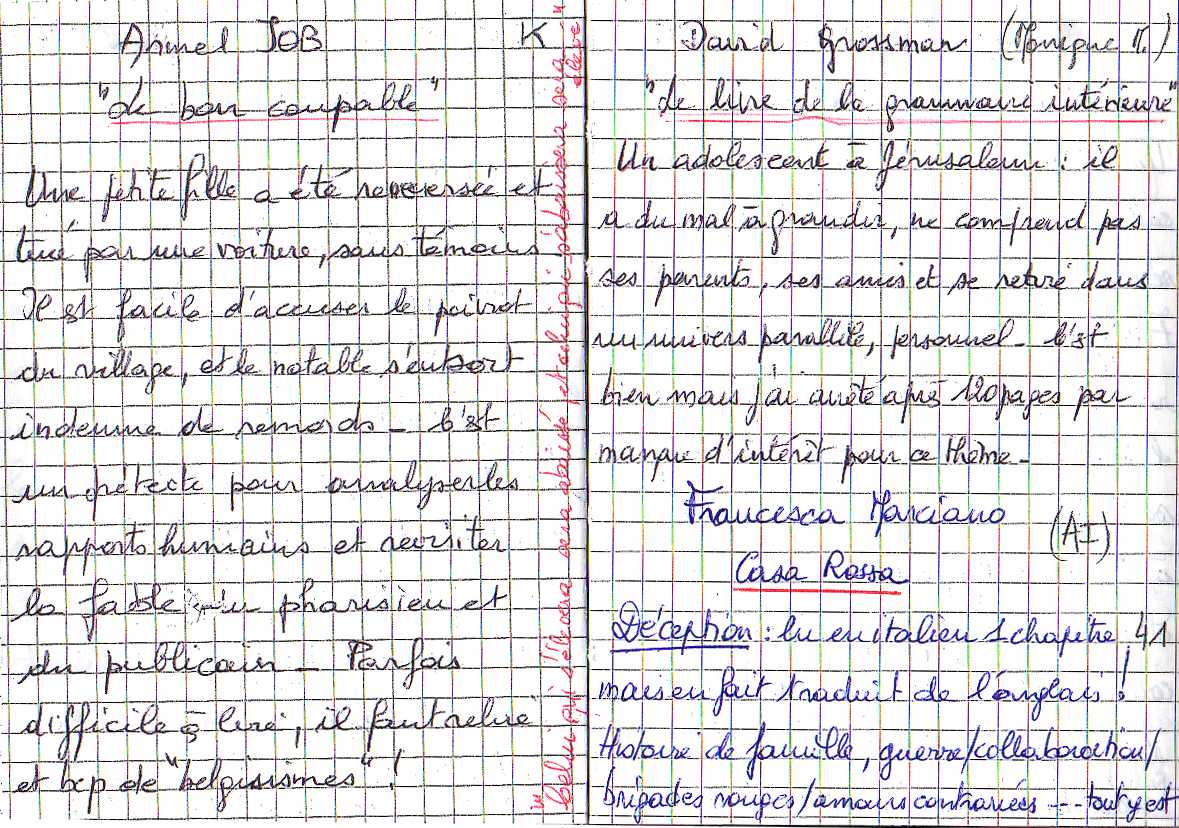 Armel JOB K
"Le bon coupable"
Une petite fille a été renversée et
tuée par une voiture, sans témoins
Il est facile d'accuser le poivrot
du village, et le notable s'en sort
indemne de remords - C'est
un prétexte pour analyser les
rapports humains et revisiter
la fable du pharisien et
du publicain - Parfois
difficile à lire, il faut relire
et bcp de "belgisismes" !
"Celui qui s'élèvera sera abaissé et celui qui s'abaissera sera
élevé"
David Grossman (Monique M.)
"Le livre de la grammaire intérieure"
Un adolescent à Jérusalem : il
a du mal à grandir, ne comprend pas
ses parents, ses amis et se retire dans
un univers parallèle, personnel - C'est
bien mais j'ai arrêté après 120 pages par
manque d'intérêt pour ce thème -
Francesca Marciano
(AI)
Casa Rossa
Déception : lu en italien 1 chapitre, 41
mais en fait traduit de l'anglais !
Histoire de famille, guerre/collaboration/
brigades rouges/amours contrariées --- tout y est